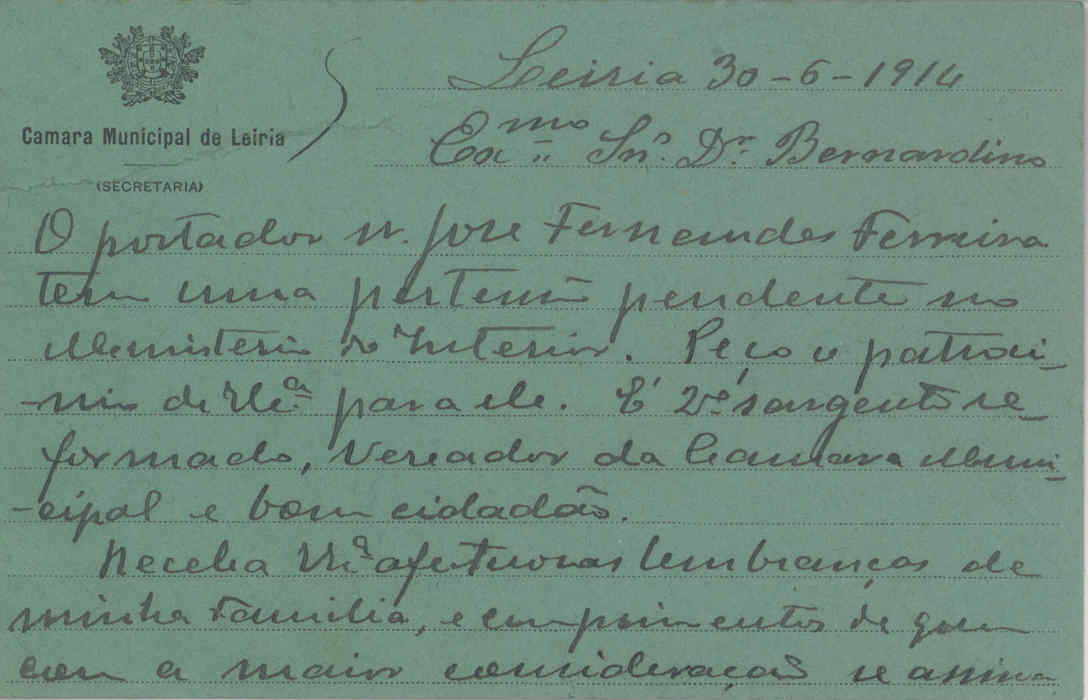 Camara Municipal de Leiria
(SECRETARIA)
Leiria 30-6-1914
Ex.mo Snr. Dr. Bernardino
O portador sr. José Fernandes Ferreira
tem uma pertensão pendente no
Ministerio do Interior. Peço o patroci-
-nio de V.Ex.ª para ele. É 2º sargento re-
formado, Vereador da Camara Muni-
-cipal e bom cidadão.
Receba V.Ex.ª afectuosas lembranças de
minha familia, e cumprimentos de quem
com a maior consideração se assina